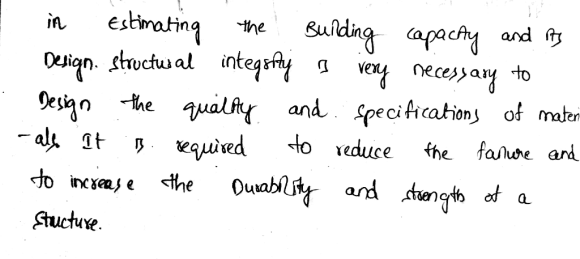 in estimating the Building capacity and its
Design. structural integrity is very necessary to
Design the quality and specifications of materi
-als It is required to reduce the failure and
to increase the Durability and strength of a
structure.